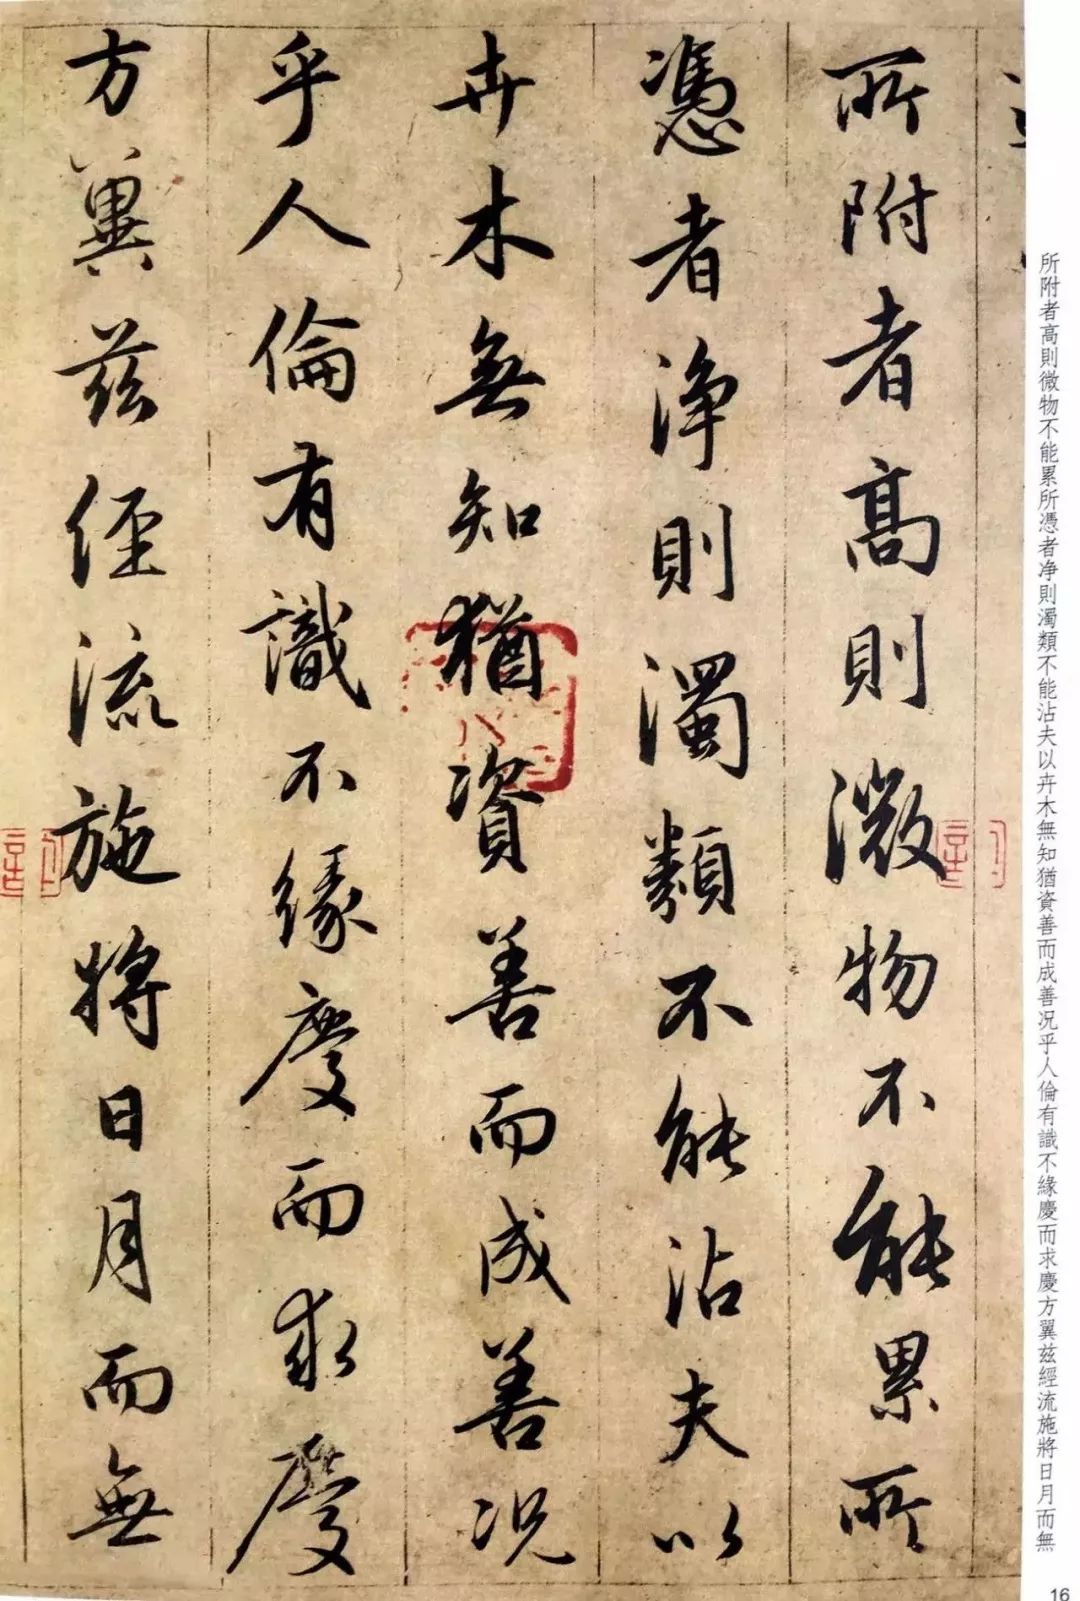 所附者高則微物不能累所
憑者淨則濁類不能沾夫以
卉木無知猶資善而成善況
乎人倫有識不緣慶而求慶
方翼茲經流施將日月而無
所附者高則微物不能累所憑者净則濁類不能沾夫以卉木無知猶資善而成善况乎人倫有識不緣慶而求慶方翼兹經流施將日月而無
16